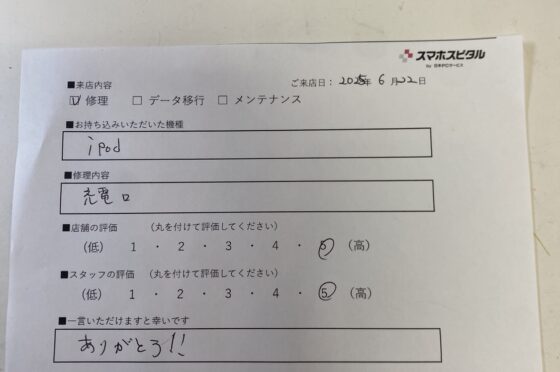 スマホスピタル
by 日本PCサービス
ご来店日：2025年 6月22日
■来店内容
☑ 修理 □ データ移行 □ メンテナンス
■お持ち込みいただいた機種
ipod
■修理内容
充電口
■店舗の評価 （丸を付けて評価してください）
（低） 1 ・ 2 ・ 3 ・ 4 ・ 5 （高）
■スタッフの評価 （丸を付けて評価してください）
（低） 1 ・ 2 ・ 3 ・ 4 ・ 5 （高）
■一言いただけますと幸いです
ありがとう!!